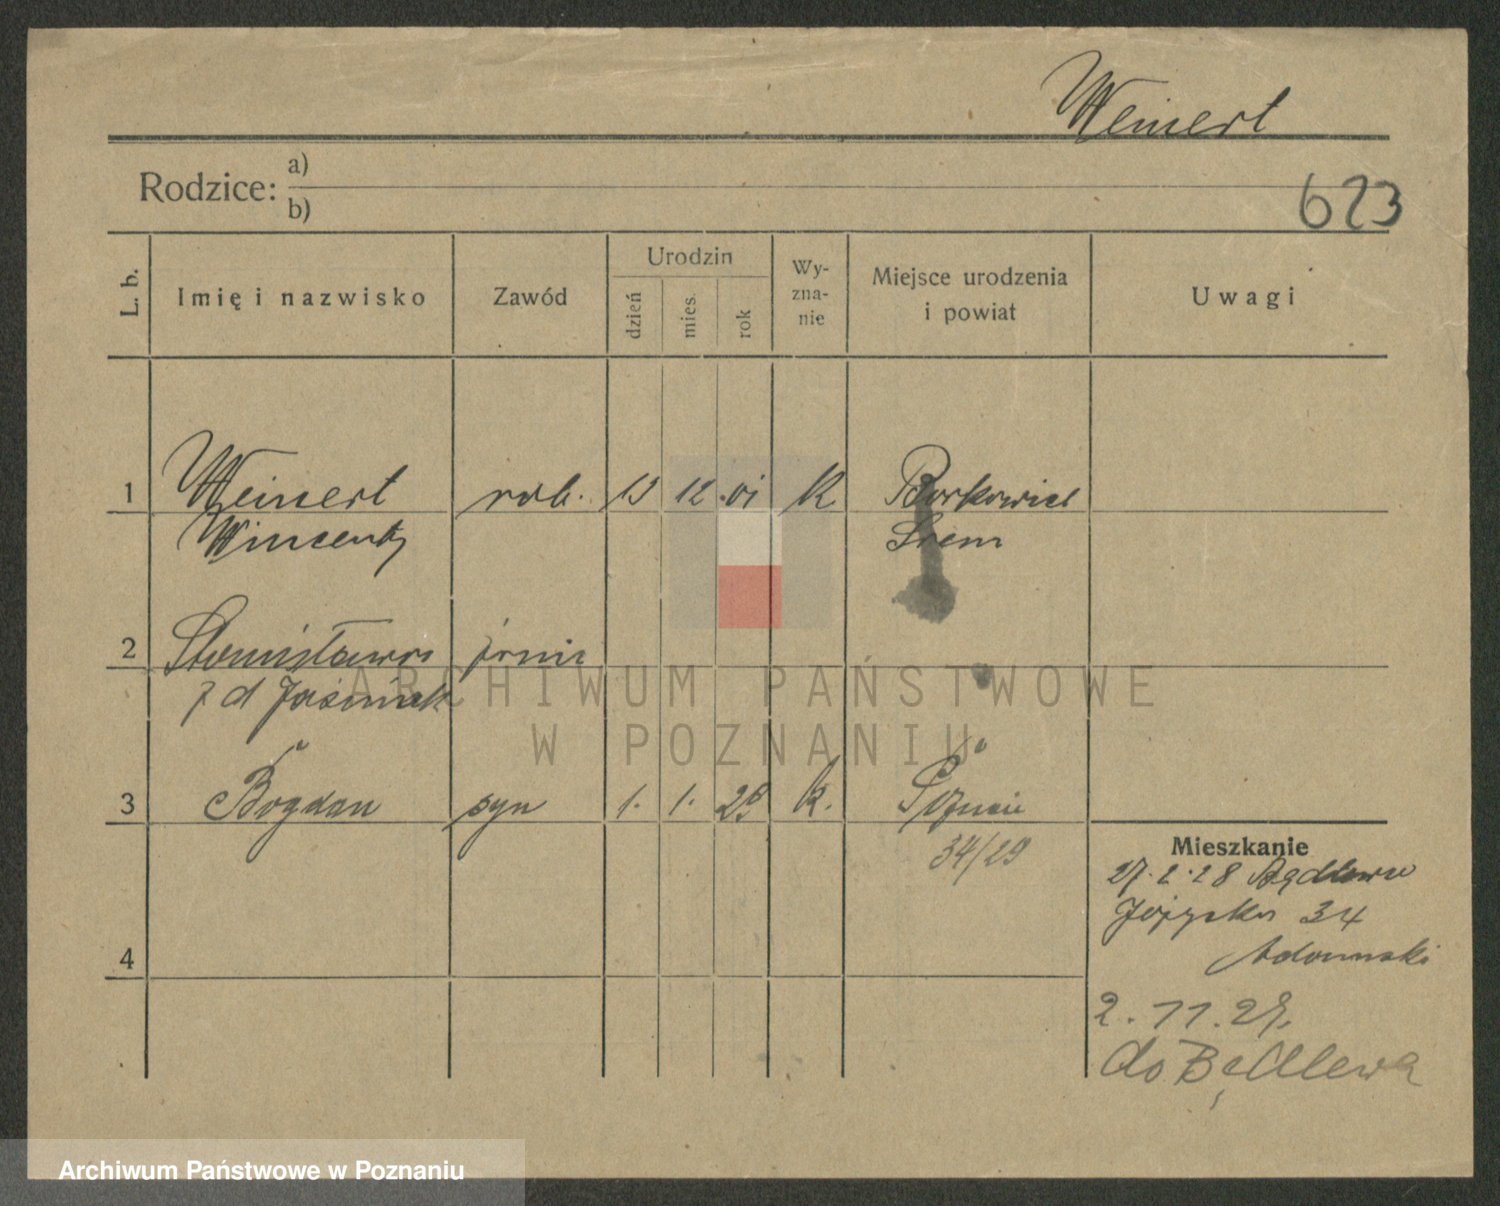 Weinert
Rodzice: a)
b)
623
L. b. Imię i nazwisko Zawód Urodzin dzień mies. rok Wyznanie Miejsce urodzenia i powiat Uwagi
1 Weinert rob. 13 12 .01 K Borkowice
Wincenty Śrem
2 Stanisława żona
z d Jasiniak
3 Bogdan syn 1. 1. K.
34/29
Mieszkanie
27.2.28 Będlewo
34
Adamski
4
2.11.29.
do Będlewa
ARCHIWUM PAŃSTWOWE
W POZNANIU
Archiwum Państwowe w Poznaniu